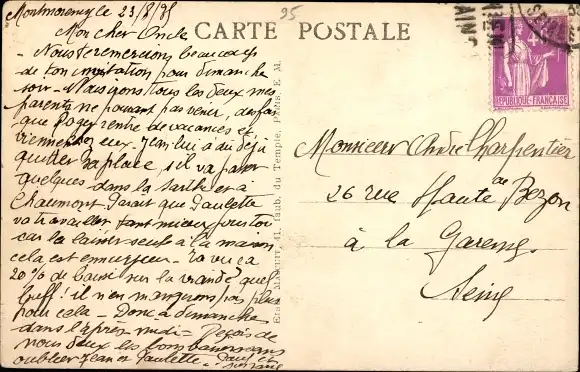 Montmorency le 23/8/35
95
CARTE POSTALE
Mon cher Oncle
Nous te remercions beaucoup
de ton invitation pour dimanche
soir. Nous irons tous les deux mes
parents ne pouvant pas venir,
que Roger rentre de vacances et
viennent eux. Jean lui a dû déjà
quitter sa place, il va passer
quelques dans la Sarthe et à
Chaumont. Parait que Paulette
va travailler tant mieux pour toi
car la laisser seule à la maison
cela est ennuyeux. Ta vu ça
20% de baisse sur la viande quel
buff! il n'en mangerons pas plus
pour cela. Donc à dimanche
dans l'après midi = Reçois de
nous deux les bons baisers sans
oublier Jean et Paulette.
RÉPUBLIQUE FRANÇAISE
Monsieur André Charpentier
26 rue Haute de Bezon
à la Garenne
Seine
41, Faub. du Temple, PARIS. E. M.